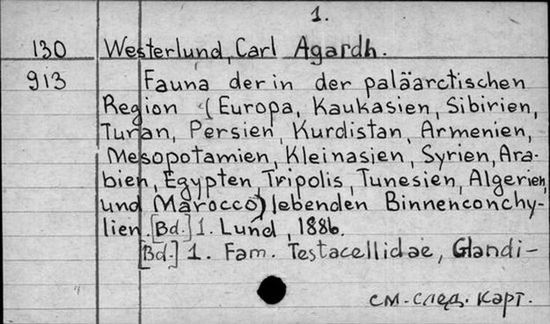 1.
130 Westerlund, Carl Agardh.
913 Fauna der in der paläarctischen
Region (Europa, Kaukasien, Sibirien,
Turan, Persien, Kurdistan, Armenien,
Mesopotamien, Kleinasien, Syrien, Ara-
bien, Egypten, Tripolis, Tunesien, Algerien
und Marocco) lebenden Binnenconchy-
lien. [Bd.] 1. Lund, 1886.
[Bd.] 1. Fam. Testacellidae, Glandi-
см. след. карт.